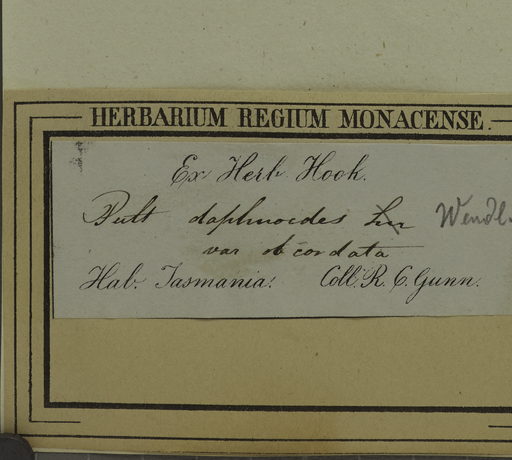 HERBARIUM REGIUM MONACENSE.
Ex Herb. Hook.
Pult daphnoides Wendl.
var obcordata
Hab. Tasmania. Coll. R. C. Gunn.